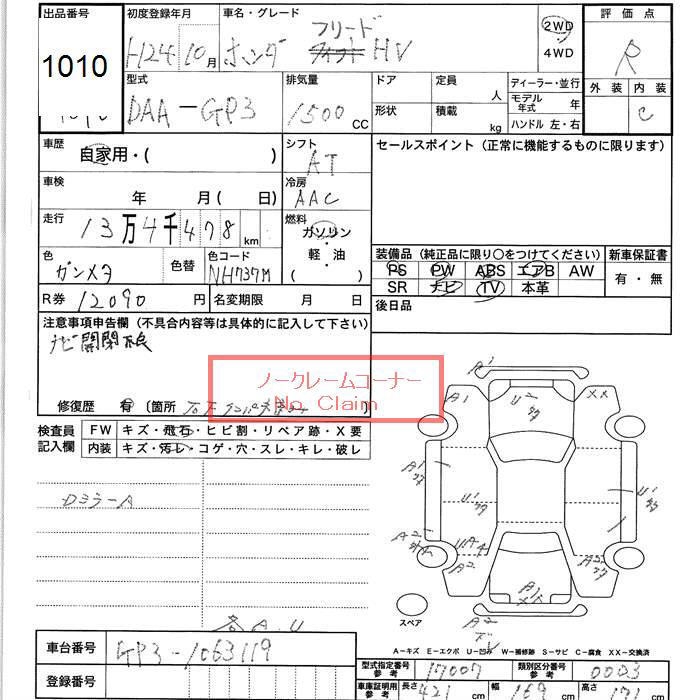 出品番号 初度登録年月 車名・グレード 評価点
フリード
1010 H24 10月 ホンダ HV 2WD・4WD R
型式 排気量 ドア 定員 人 ディーラー・並行 外装 内装
DAA-GP3 1500 CC 形状 積載 kg モデル年式 年 C
ハンドル 左・右
車歴 自家用・( ) シフト AT セールスポイント (正常に機能するものに限ります)
車検 年 月 ( 日) 冷房 AAC
走行 13万4千478 km 燃料 ガソリン・軽油・( )
色 ガンメタ 色替 色コード NH737M
装備品 (純正品に限り○をつけてください) 新車保証書
PS PW ABS エアB AW 有・無
SR ナビ TV 本革
R券 12090円 名変期限 月 日 後日品
注意事項申告欄 (不具合内容等は具体的に記入して下さい)
ナビ開閉不良
ノークレームコーナー
No Claim
修復歴 有 (箇所
検査員記入欄 FW キズ・飛石・ヒビ割・リペア跡・X要
内装 キズ・汚レ・コゲ・穴・スレ・キレ・破レ
DミラーA
A1
A1 U2 XX
A1 U1 U1
A2 UA4 A2 A2
A1
A2
スペア
A-キズ E-エクボ U-凹み W-補修跡 S-サビ C-腐食 XX-交換済
各A.U
車台番号 GP3-1063119
登録番号
型式指定番号 参考 17007 類別区分番号 参考 0003
車庫証明用 参考 長さ 421 cm 幅 169 cm 高さ 171 cm